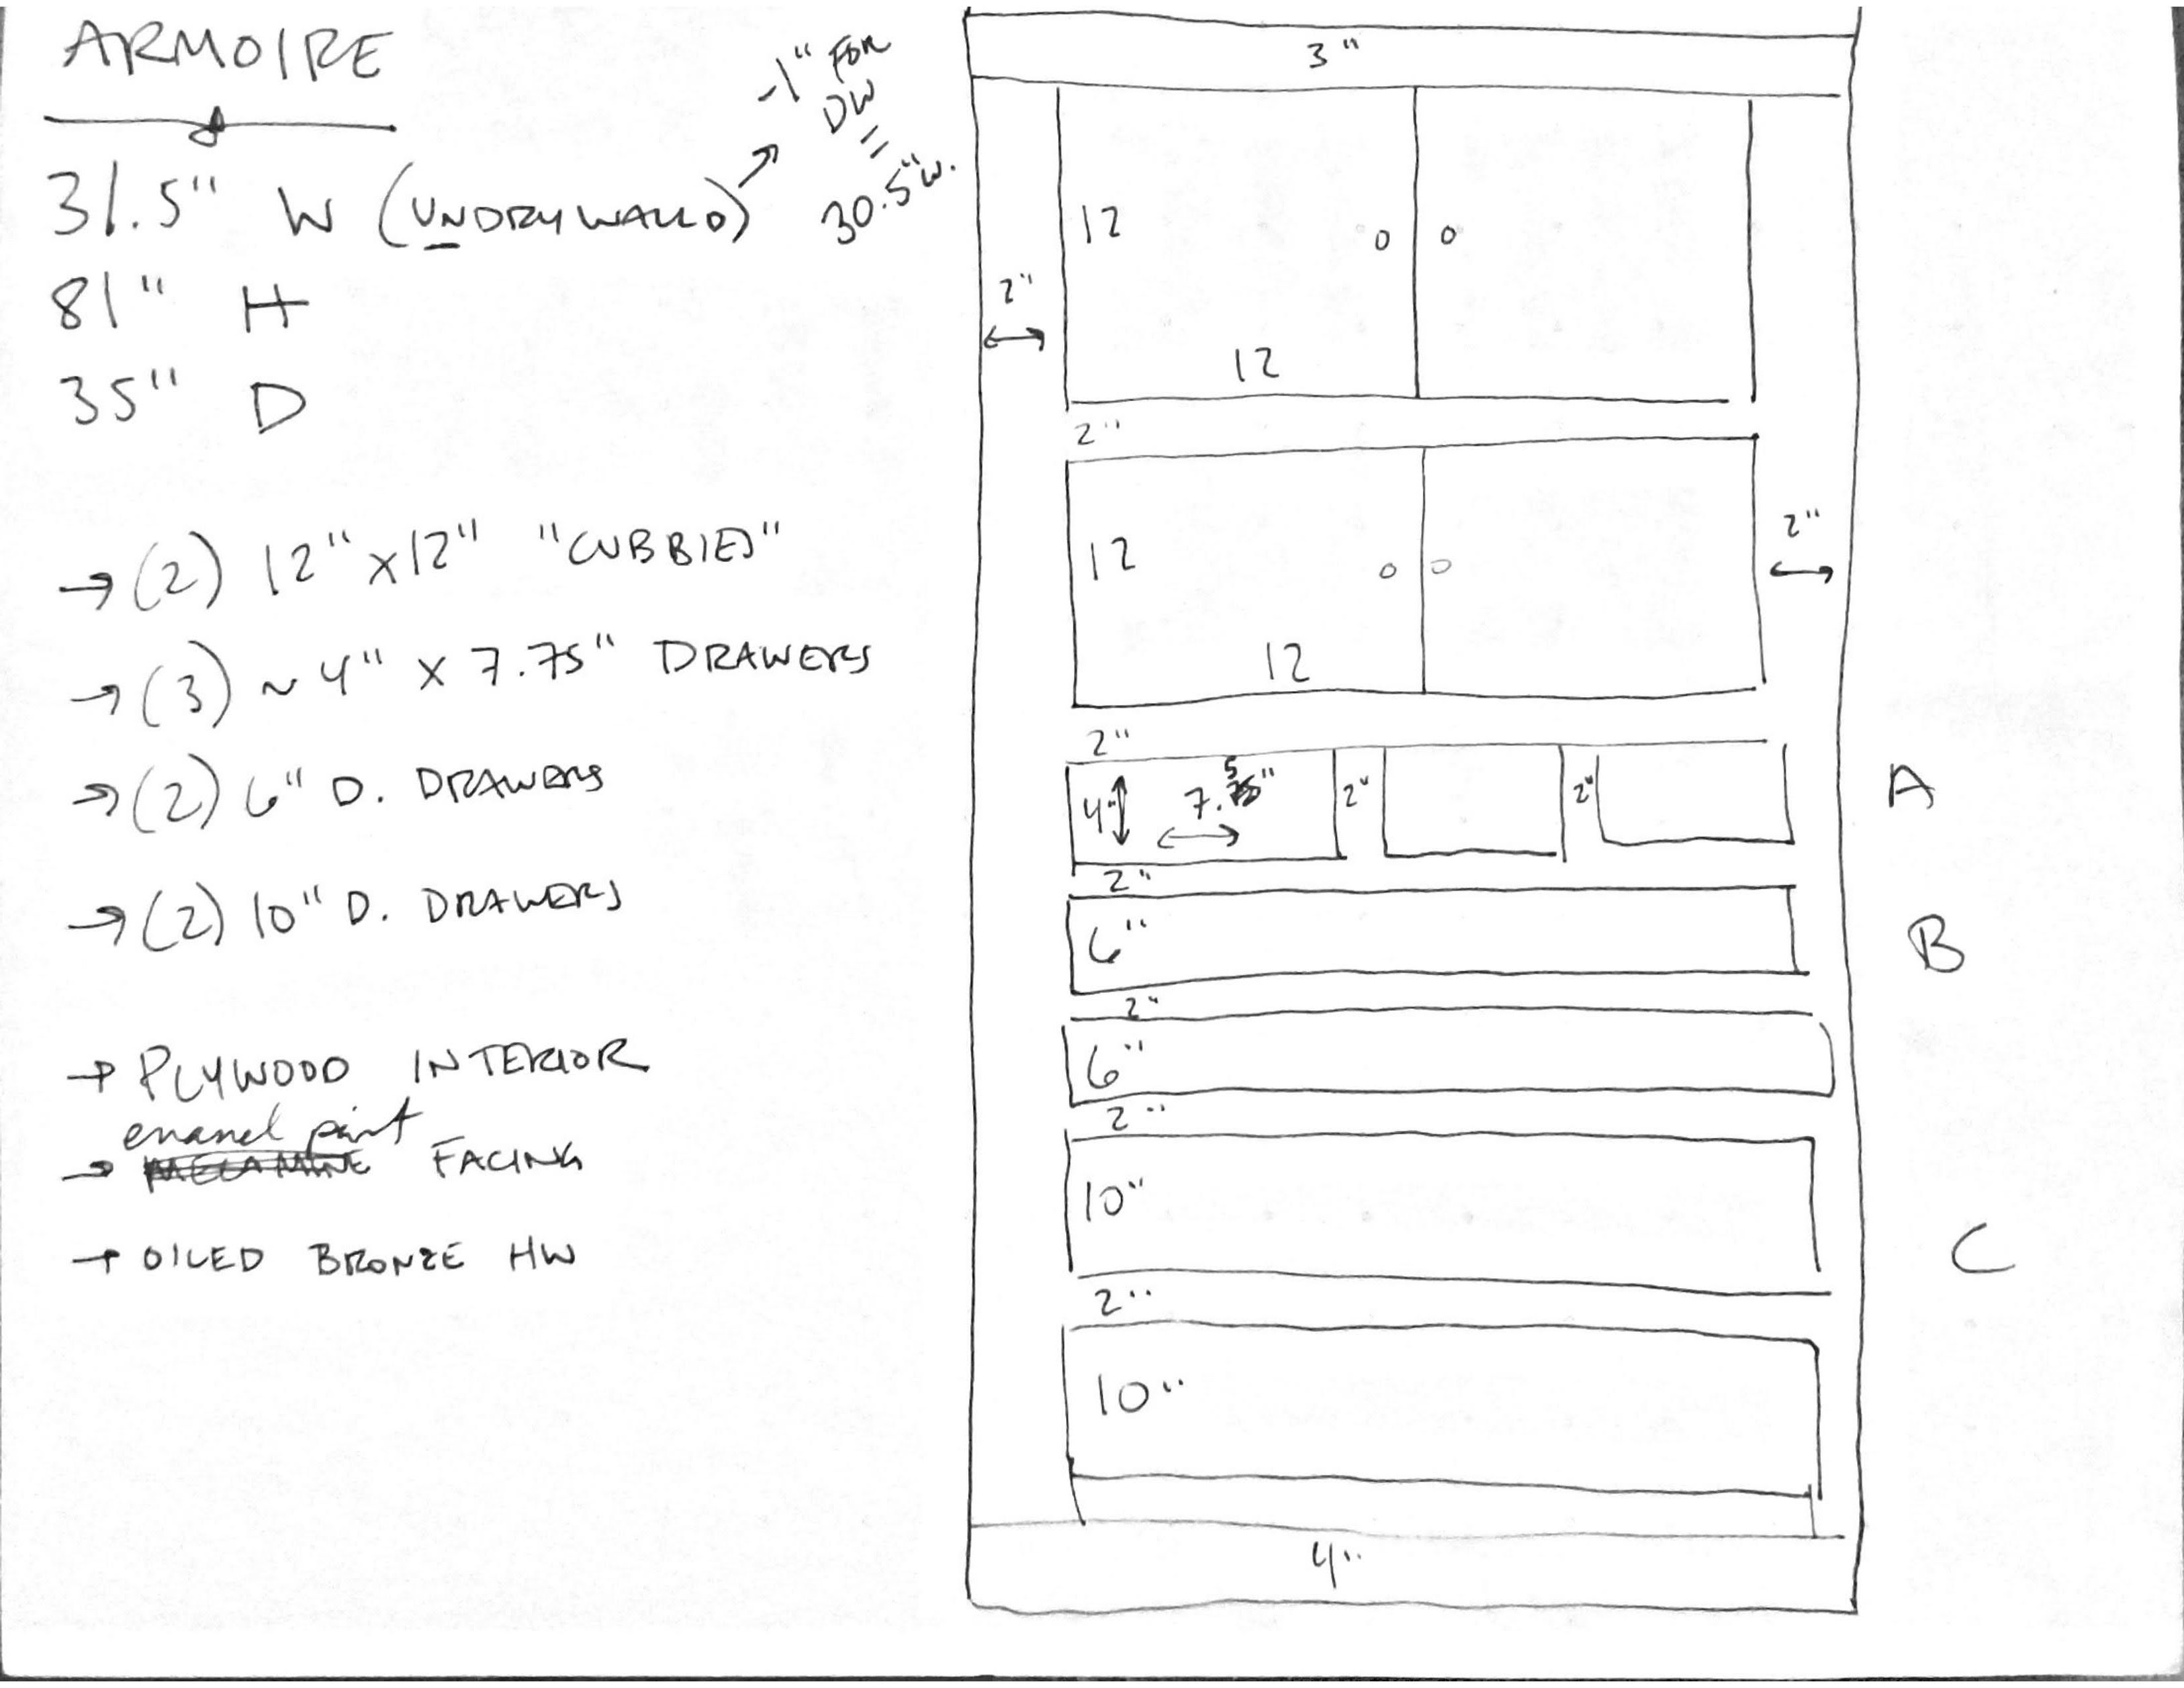 ARMOIRE
31.5" W (UNDRYWALLD)
-1" FOR
DW
=
30.5" W.
81" H
35" D
→ (2) 12" x 12" "CUBBIES"
→ (3) ~ 4" x 7.75" DRAWERS
→ (2) 6" D. DRAWERS
→ (2) 10" D. DRAWERS
→ PLYWOOD INTERIOR
enamel paint
→ MELAMINE FACING
→ OILED BRONZE HW
3"
12
2"
12
2"
12
2"
12
2"
4" 7.5" 2" 2" A
2"
6" B
2"
6"
2"
10" C
2"
10"
4"